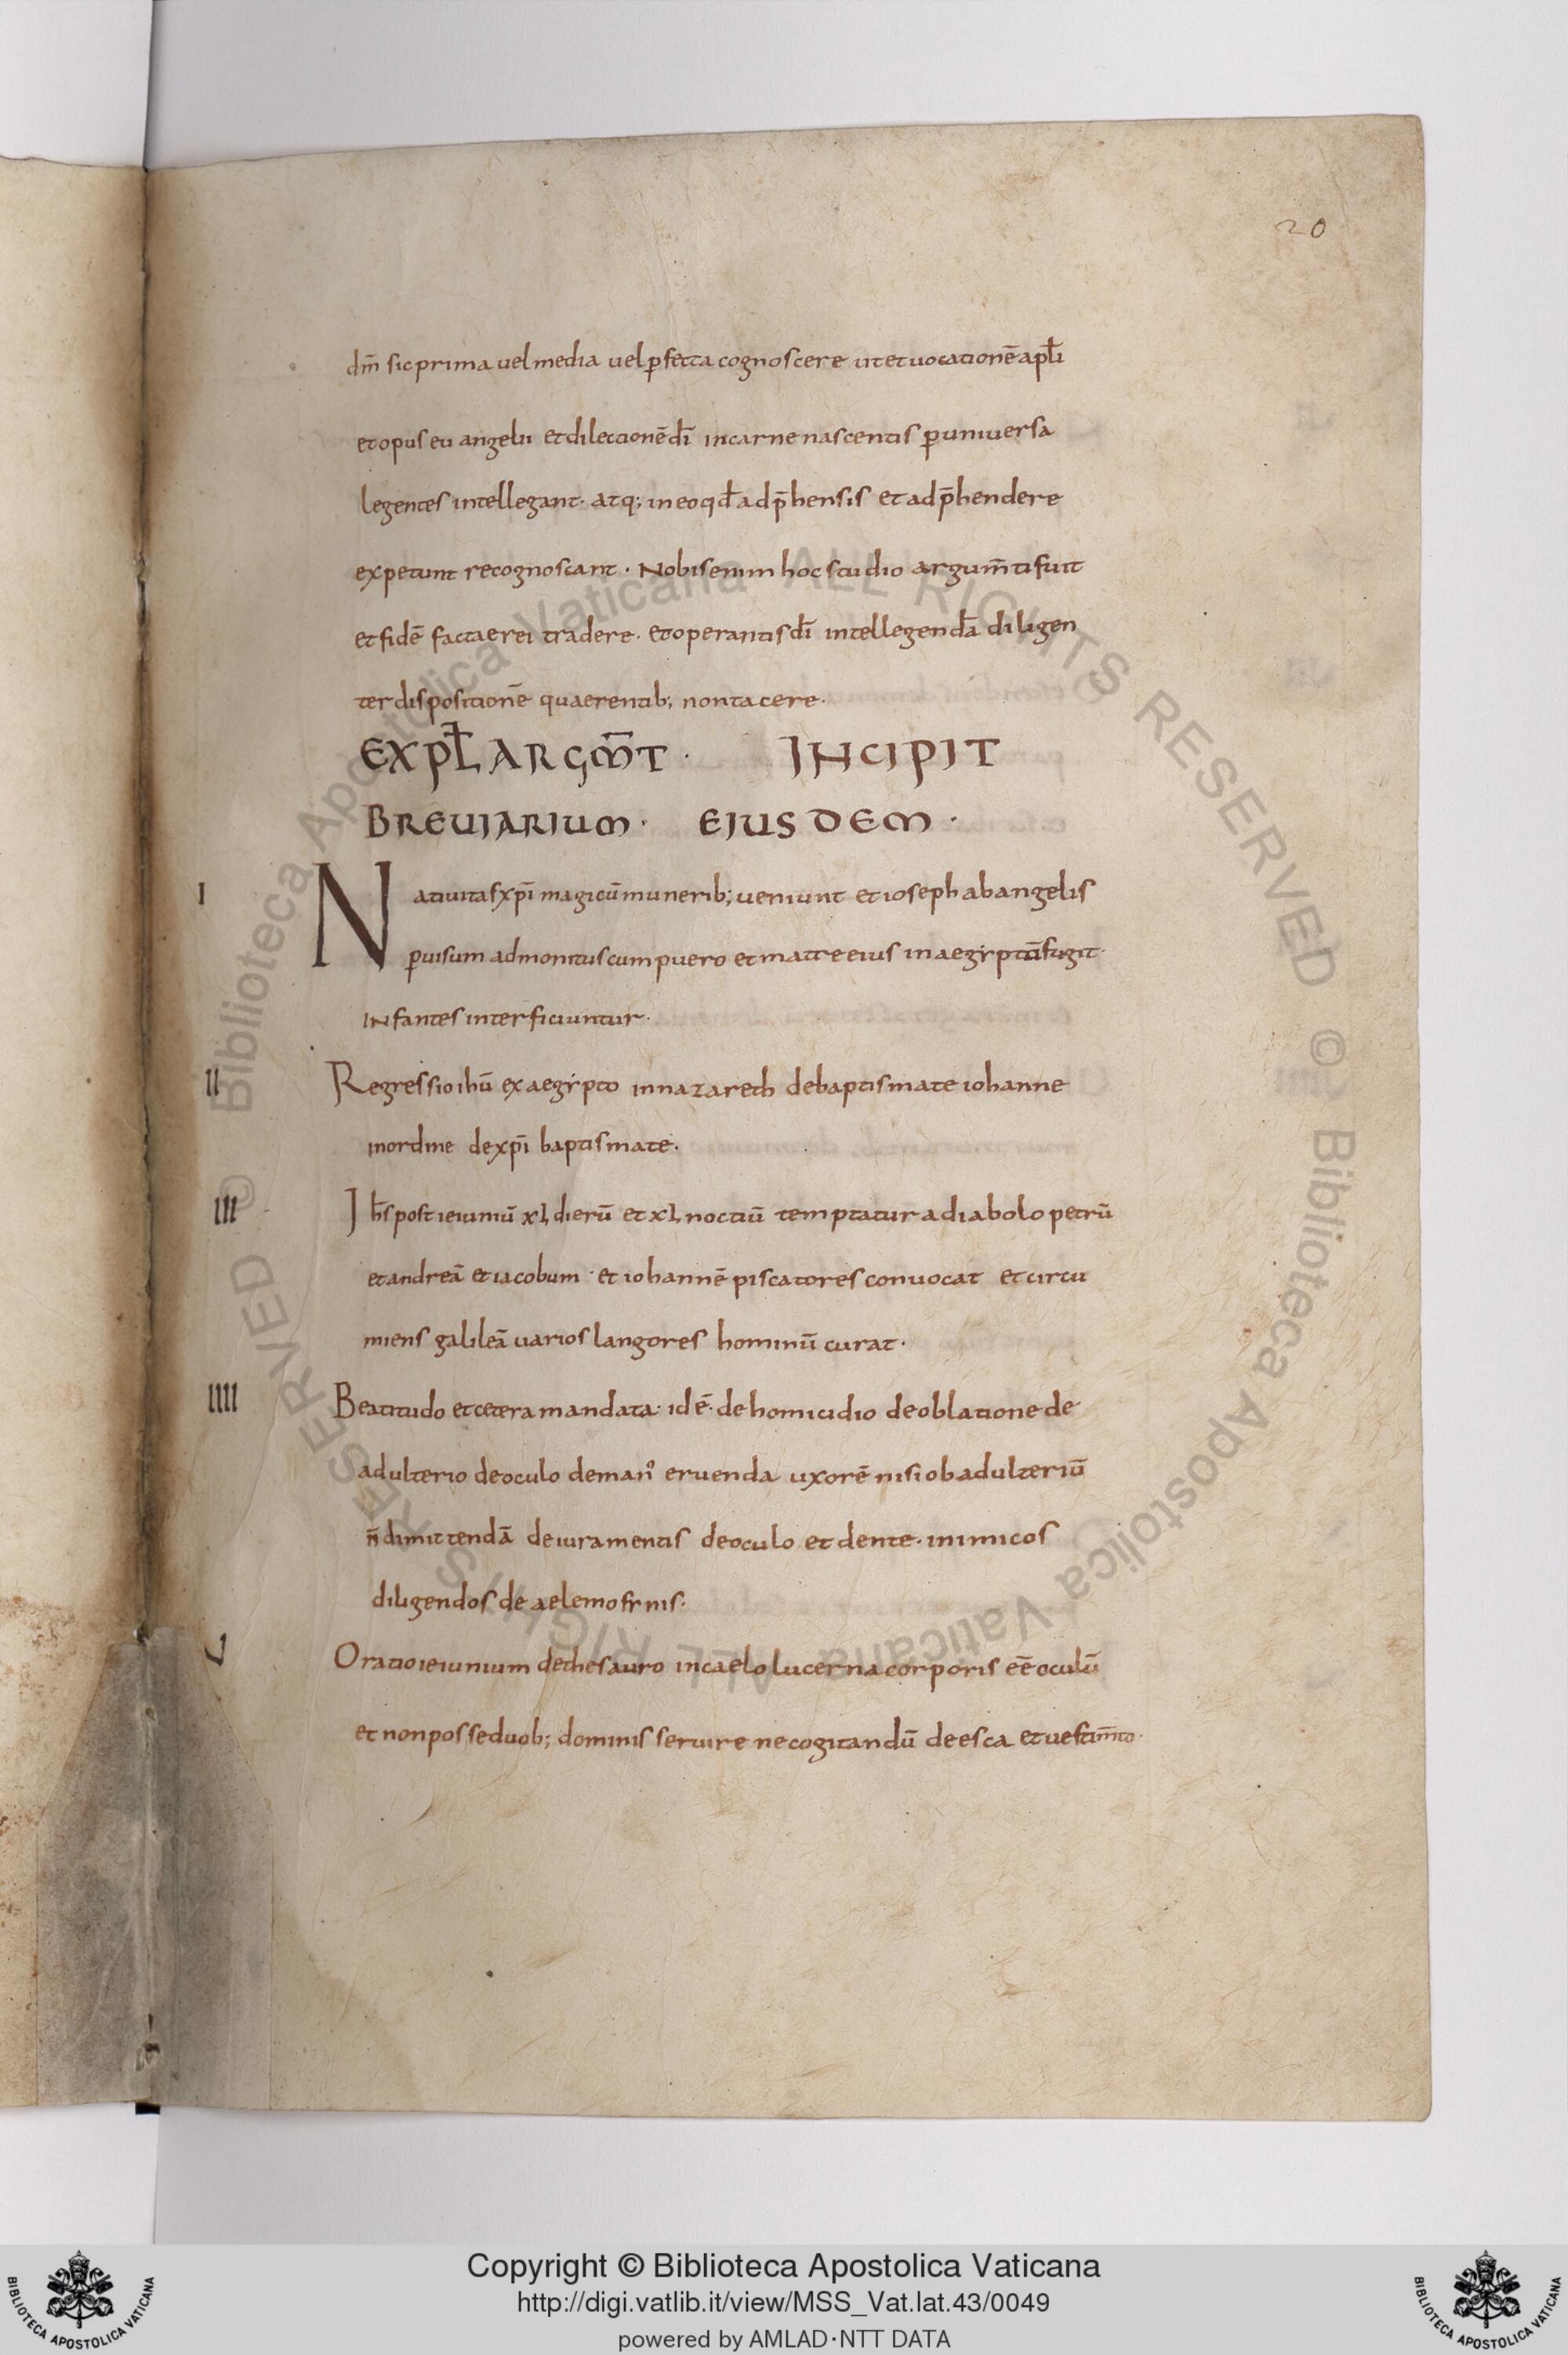 20
dm̄ sic prima uel media uel ꝑfecta cognoscere ut et uocationē apłi
et opus euangelii et dilectionē dī in carne nascentis ꝑ uniuersa
legentes intellegant · atq; in eo qđ adp̄hensis et adp̄hendere
expetunt recognoscant · Nobis enim hoc studio argum̄ti fuit
et fidē factae rei tradere · et operantis dī intellegendā diligen
ter dispositionē quaerentib; non tacere ·
EXPŁ ARGM̄T · INCIPIT
BREUIARIUM · EIUSDEM ·
I Natiuitas xp̄i magi cū munerib; ueniunt et ioseph ab angelis
ꝑ uisum admonitus cum puero et matre eius in aegyptū fugit ·
Infantes interficiuntur ·
II Regressio ihū ex aegypto in nazareth de baptismate iohanne
in ordine de xp̄i baptismate ·
III Ihs̄ post ieiuniū xl dierū et xl noctiū temptatur a diabolo petrū
et andreā et iacobum · et iohannē piscatores conuocat et circu
miens galileā uarios langores hominū curat ·
IIII Beatitudo et cetera mandata · id ē · de homicidio de oblatione de
adulterio de oculo de manᵒ eruenda uxorē nisi ob adulteriū
n̄ dimittendā de iuramentis de oculo et dente · inimicos
diligendos de aelemosynis ·
V Oratio ieiunium de thesauro in caelo lucerna corporis eē oculū
et non posse duob; dominis seruire ne cogitandū de esca et uestim̄to ·
Copyright © Biblioteca Apostolica Vaticana
http://digi.vatlib.it/view/MSS_Vat.lat.43/0049
powered by AMLAD·NTT DATA
BIBLIOTECA APOSTOLICA VATICANA
BIBLIOTECA APOSTOLICA VATICANA
© Biblioteca Apostolica Vaticana ALL RIGHTS RESERVED
© Biblioteca Apostolica Vaticana ALL RIGHTS RESERVED